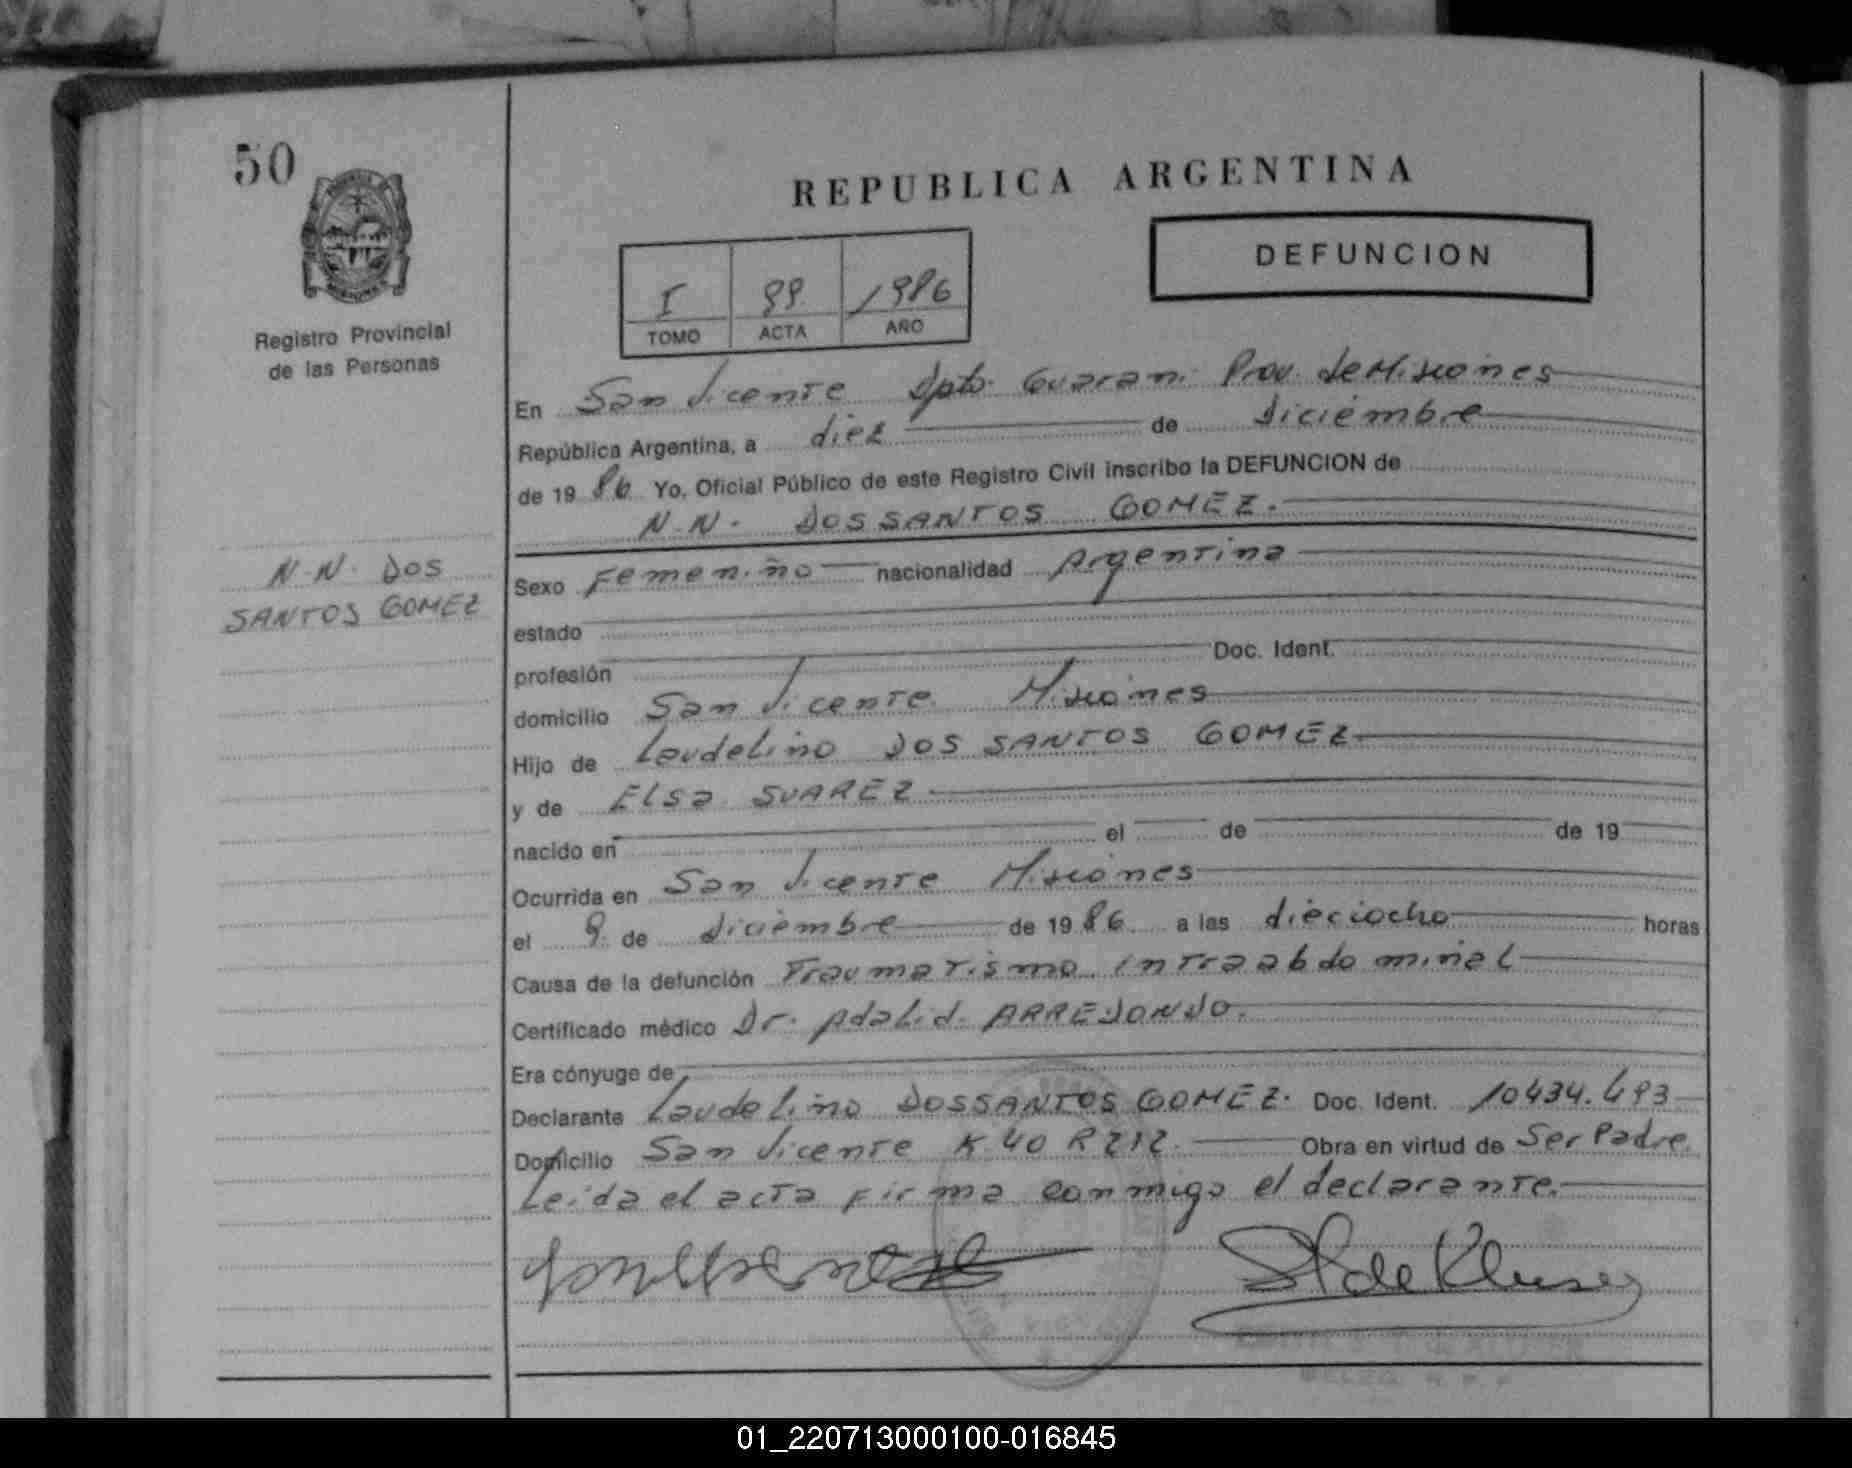 50
Registro Provincial
de las Personas
N.N. DOS
SANTOS GOMEZ
REPUBLICA ARGENTINA
DEFUNCION
I 99 1986
TOMO ACTA AÑO
En San Vicente Dpto. Guarani Prov. de Misiones
República Argentina, a diez de Diciembre
de 19 86 Yo, Oficial Público de este Registro Civil inscribo la DEFUNCION de
N.N. DOS SANTOS GOMEZ.
Sexo Femenino nacionalidad Argentina
estado
profesión Doc. Ident.
domicilio San Vicente Misiones
Hijo de Laudelino DOS SANTOS GOMEZ
y de Elsa SUAREZ
nacido en el de de 19
Ocurrida en San Vicente Misiones
el 9 de Diciembre de 19 86 a las dieciocho horas
Causa de la defunción Traumatismo intraabdominal
Certificado médico Dr. Adalid ARREDONDO.
Era cónyuge de
Declarante Laudelino DOS SANTOS GOMEZ. Doc. Ident. 10434.493
Domicilio San Vicente K.40 R 212. Obra en virtud de Ser Padre.
Leida el acta firma conmigo el declarante.
01_220713000100-016845